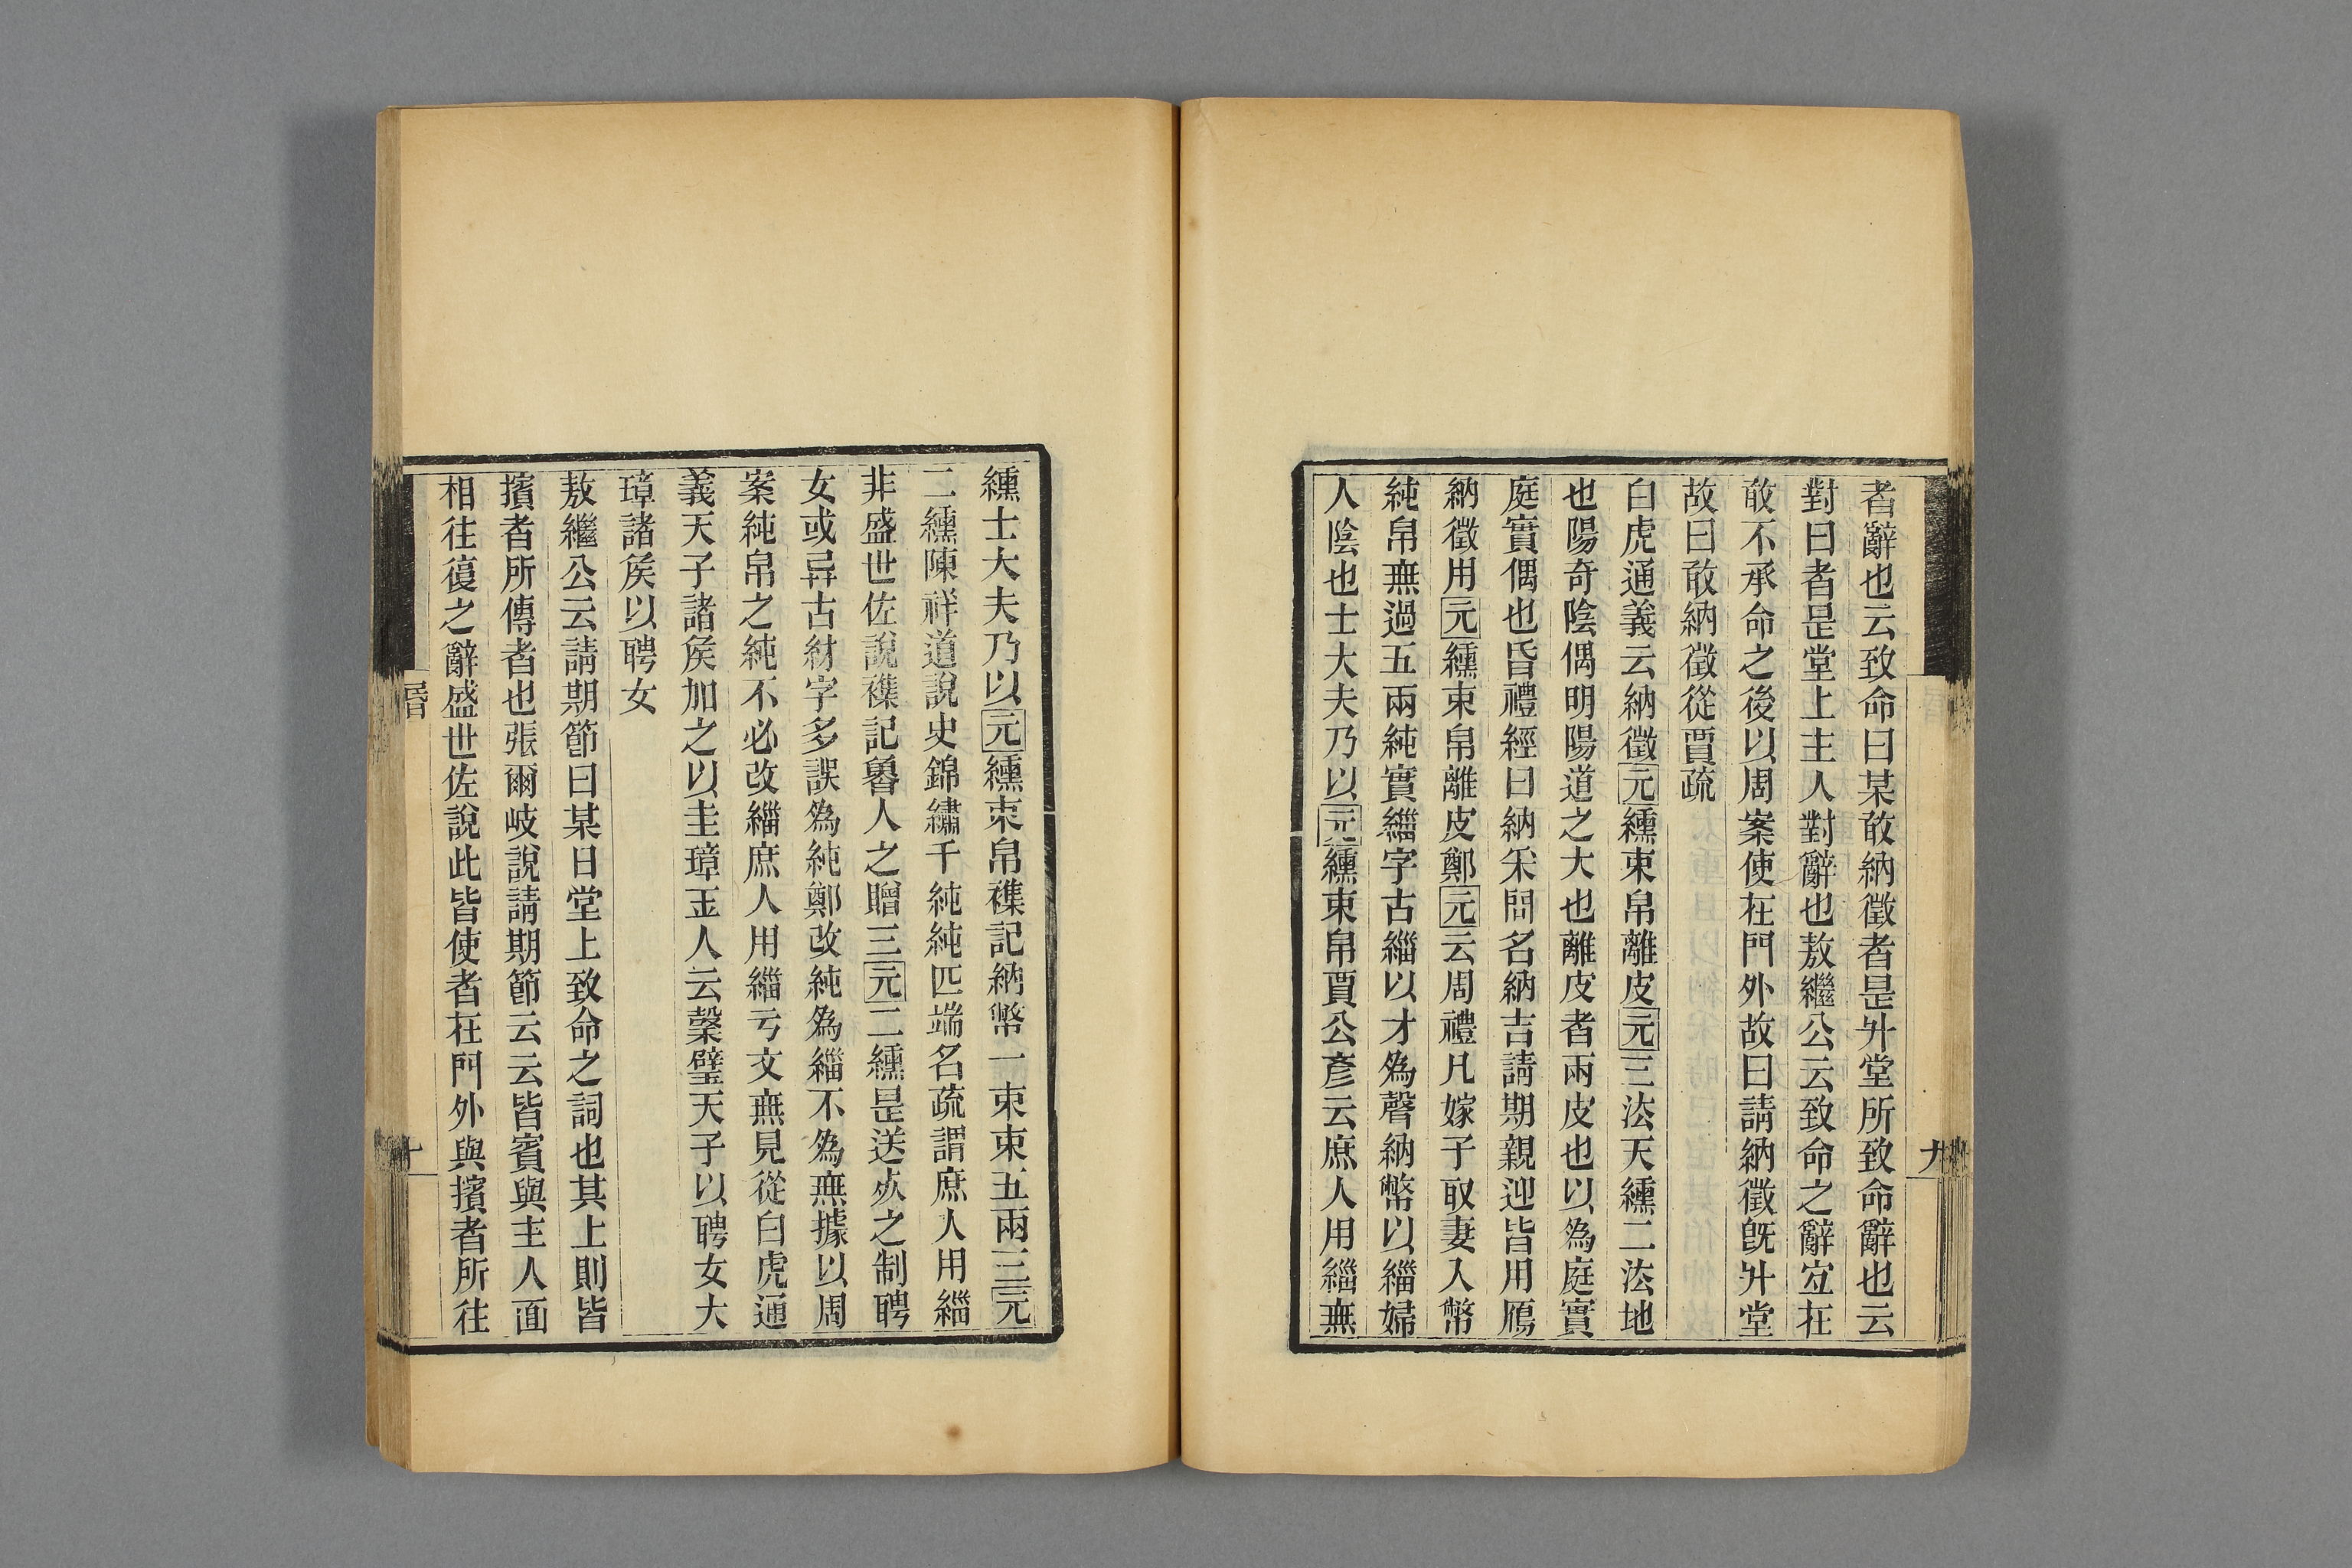 者辭也云致命曰某敢納徵者是升堂所致命辭也云
對曰者是堂上主人對辭也敖繼公云致命之辭宜在
敢不承命之後以周案使在門外故曰請納徵旣升堂
故曰敢納徵從賈疏
白虎通義云納徵元纁束帛離皮元三法天纁二法地
也陽奇陰偶明陽道之大也離皮者兩皮也以爲庭實
庭實偶也昏禮經曰納采問名納吉請期親迎皆用鴈
納徵用元纁束帛離皮鄭元云周禮凡嫁子取妻入幣
純帛無過五兩純實緇字古緇以才爲聲納幣以緇婦
人陰也士大夫乃以元纁束帛賈公彥云庶人用緇無
九
纁士大夫乃以元纁束帛襍記納幣一束束五兩三元
二纁陳祥道說史錦繡千純純匹端名疏謂庶人用緇
非盛世佐說襍記魯人之贈三元二纁是送死之制聘
女或異古紂字多誤爲純鄭改純爲緇不爲無據以周
案純帛之純不必改緇庶人用緇亏文無見從白虎通
義天子諸矦加之以圭璋玉人云榖璧天子以聘女大
璋諸矦以聘女
敖繼公云請期節曰某日堂上致命之詞也其上則皆
擯者所傳者也張爾岐說請期節云云皆賓與主人面
相往復之辭盛世佐說此皆使者在門外與擯者所往
昏